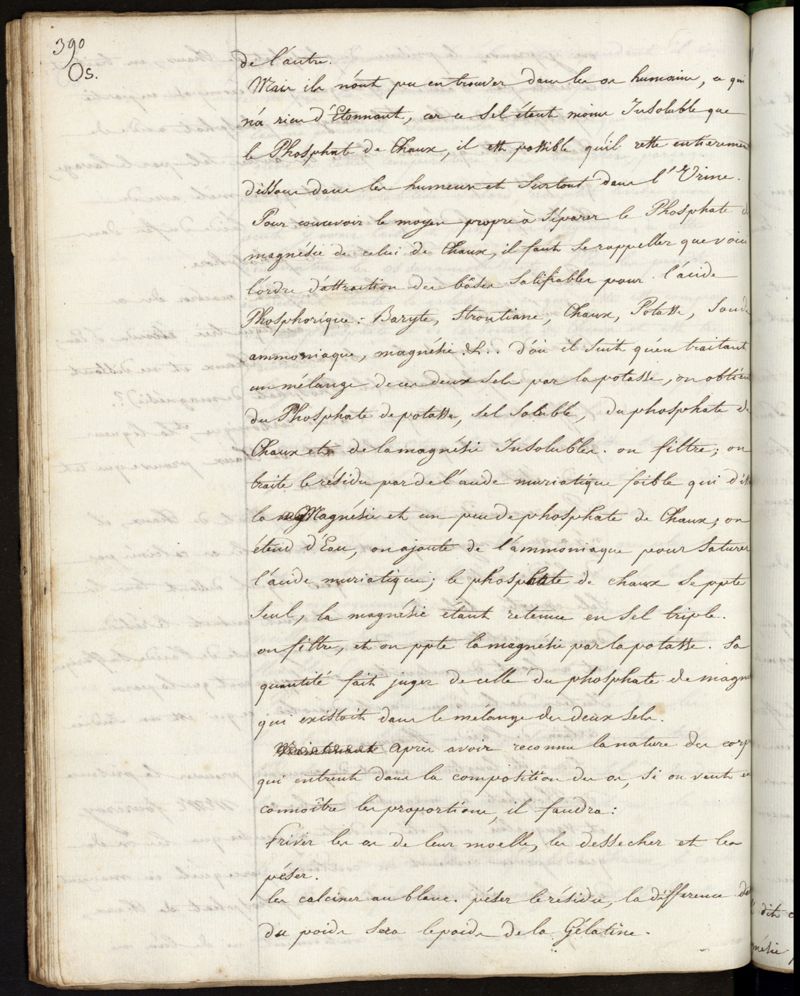 390
Os.
de l'autre.
Mais ils n'ont pu en trouver dans les os humains, ce qui
n'a rien d'Etonnant, car ce Sel étant moins Insoluble que
le Phosphate de Chaux, il est possible qu'il reste entieremen
dissous dans les humeurs et Surtout dans l'Urine.
Pour concevoir le moyen propre à Séparer le Phosphate d
magnésie de celui de Chaux, il faut se rappeller que voici
l'ordre d'attraction des bâses Salifiables pour l'acide
Phosphorique: Baryte, Strontiane, Chaux, Potasse, Soude
ammoniaque, magnésie &.. d'où il Suit qu'en traitant
un mélange de ces deux Sels par la potasse, on obtien
du Phosphate de potasse, Sel Soluble, du phosphate de
Chaux et de la magnésie Insolubles. on filtre; on
traite le résidu par de l'acide muriatique foible qui di
la Magnésie et un peu de phosphate de Chaux; on
étend d'Eau, on ajoute de l'ammoniaque pour Saturer
l'acide muriatique; le phosphate de chaux Se ppte
Seul, la magnésie étant retenue en Sel triple.
on filtre, et on ppte la magnésie par la potasse. Sa
quantité fait juger de celle du phosphate de magn
qui existoit dans le mélange des deux Sels.
après avoir reconnu la nature des corps
qui entrent dans la composition des os, si on veut en
connoître les proportions, il faudra:
Priver les os de leur moelle, les dessecher et les
péser.
les calciner au blanc. péser le résidu, la difference
du poids sera le poids de la Gélatine.
dit
nésie